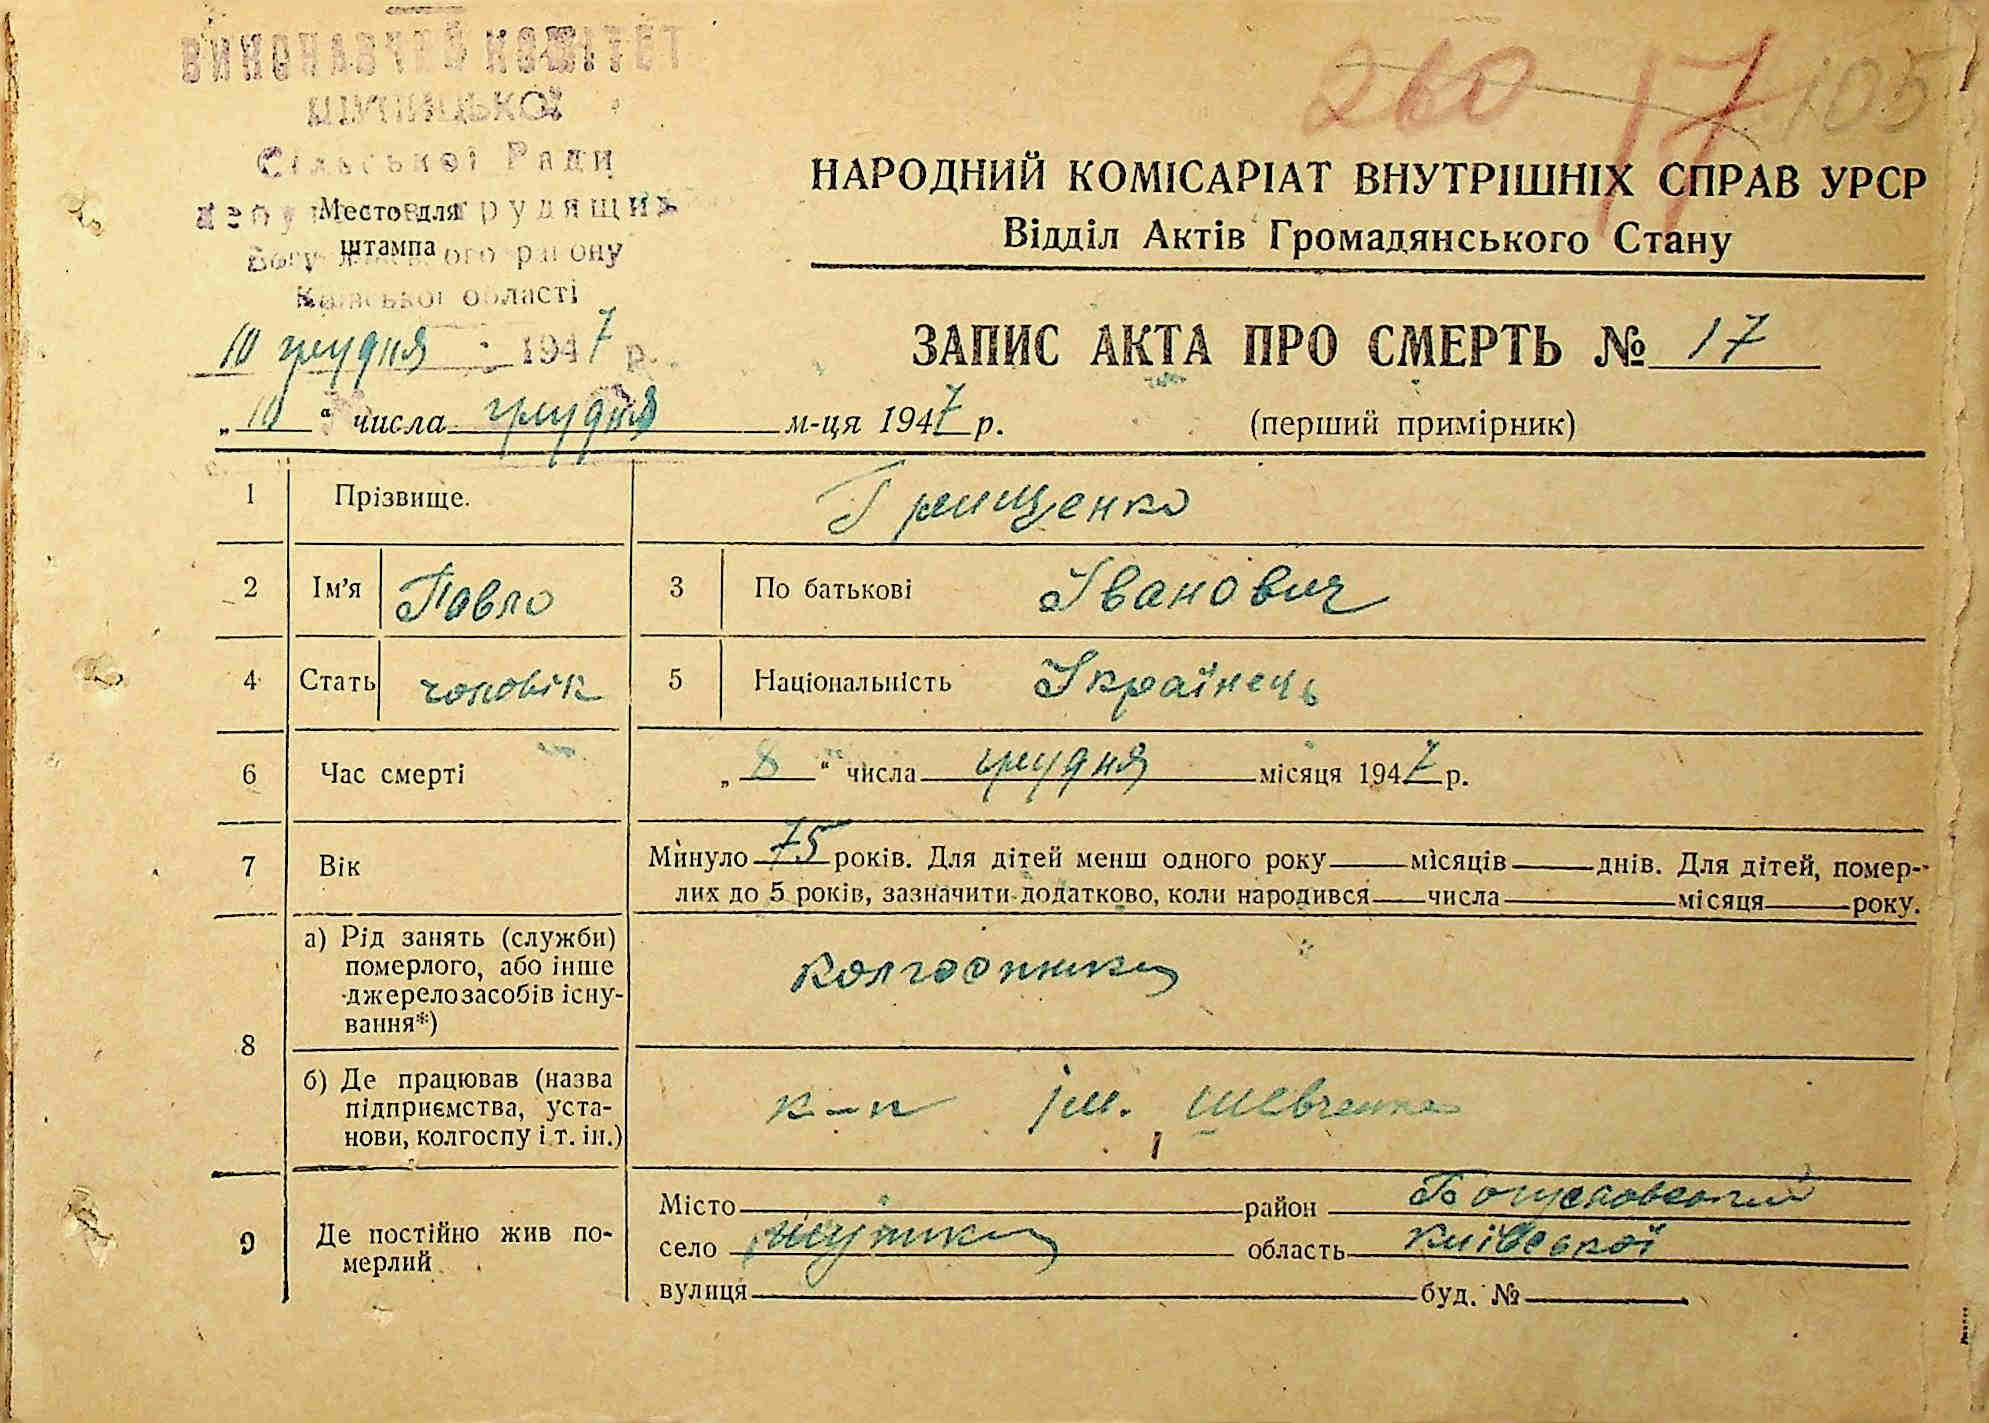 ВИКОНАВЧИЙ КОМІТЕТ
260 17 105
Сільської Ради
депутатів трудящих
Место для
штампа
Богуславського району
Київської області
10 грудня 1947 р.
НАРОДНИЙ КОМІСАРІАТ ВНУТРІШНІХ СПРАВ УРСР
Відділ Актів Громадянського Стану
ЗАПИС АКТА ПРО СМЕРТЬ № 17
„10“ числа грудня м-ця 1947 р. (перший примірник)
1 Прізвище. Грищенко
2 Ім'я Павло 3 По батькові Іванович
4 Стать чоловік 5 Національність Українець
6 Час смерті „8“ числа грудня місяця 1947 р.
7 Вік Минуло 75 років. Для дітей менш одного року місяців днів. Для дітей, помер-
лих до 5 років, зазначити додатково, коли народився числа місяця року.
8 а) Рід занять (служби)
померлого, або інше
джерело засобів існу-
вання*)
колгоспник
б) Де працював (назва
підприємства, уста-
нови, колгоспу і т. ін.)
к-п ім. Шевченка
9 Де постійно жив по-
мерлий
Місто район
село область Київської
вулиця буд. №